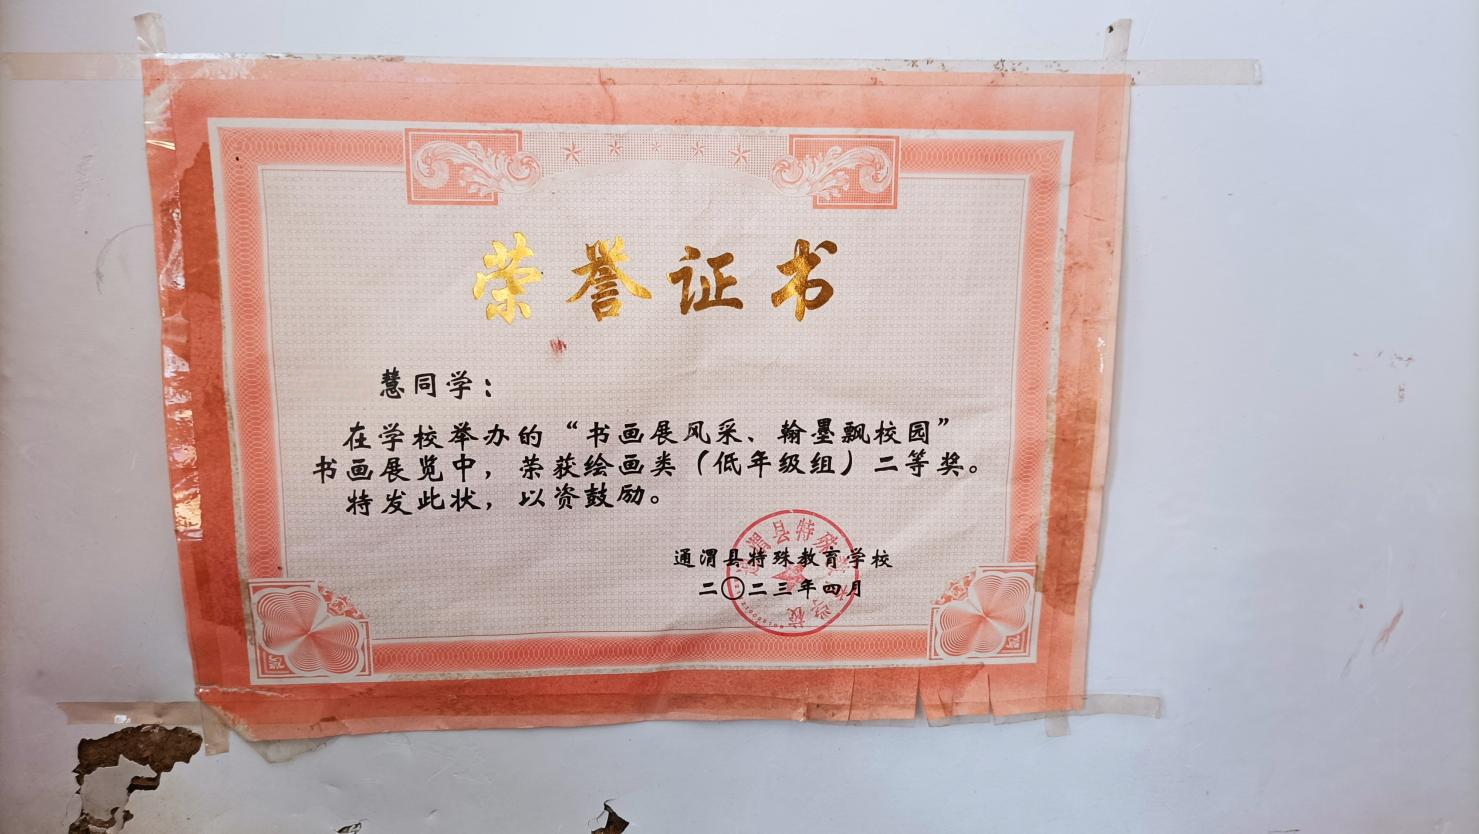 荣誉证书
慧同学：
在学校举办的“书画展风采、翰墨飘校园”
书画展览中，荣获绘画类（低年级组）二等奖。
特发此状，以资鼓励。
通渭县特殊教育学校
二〇二三年四月
通渭县特殊教育学校